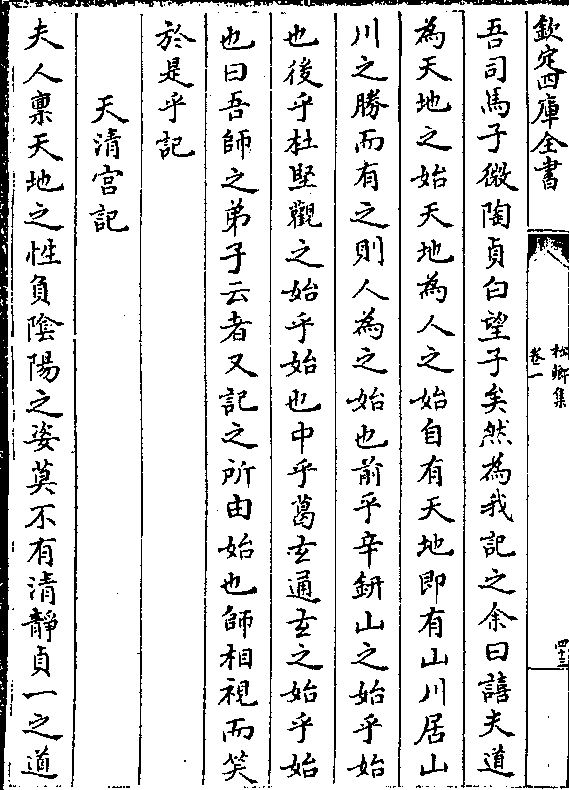 欽定四庫全書
松鄉集
卷一
四十三
吾司馬子微陶貞白望子矣然為我記之余曰譆夫道
為天地之始天地為人之始自有天地即有山川居山
川之勝而有之則人為之始也前乎辛鈃山之始乎始
也後乎杜堅觀之始乎始也中乎葛𤣥通𤣥之始乎始
也曰吾師之弟子云者又記之所由始也師相視而笑
於是乎記
天清宫記
夫人禀天地之性負隂陽之姿莫不有清靜貞一之道